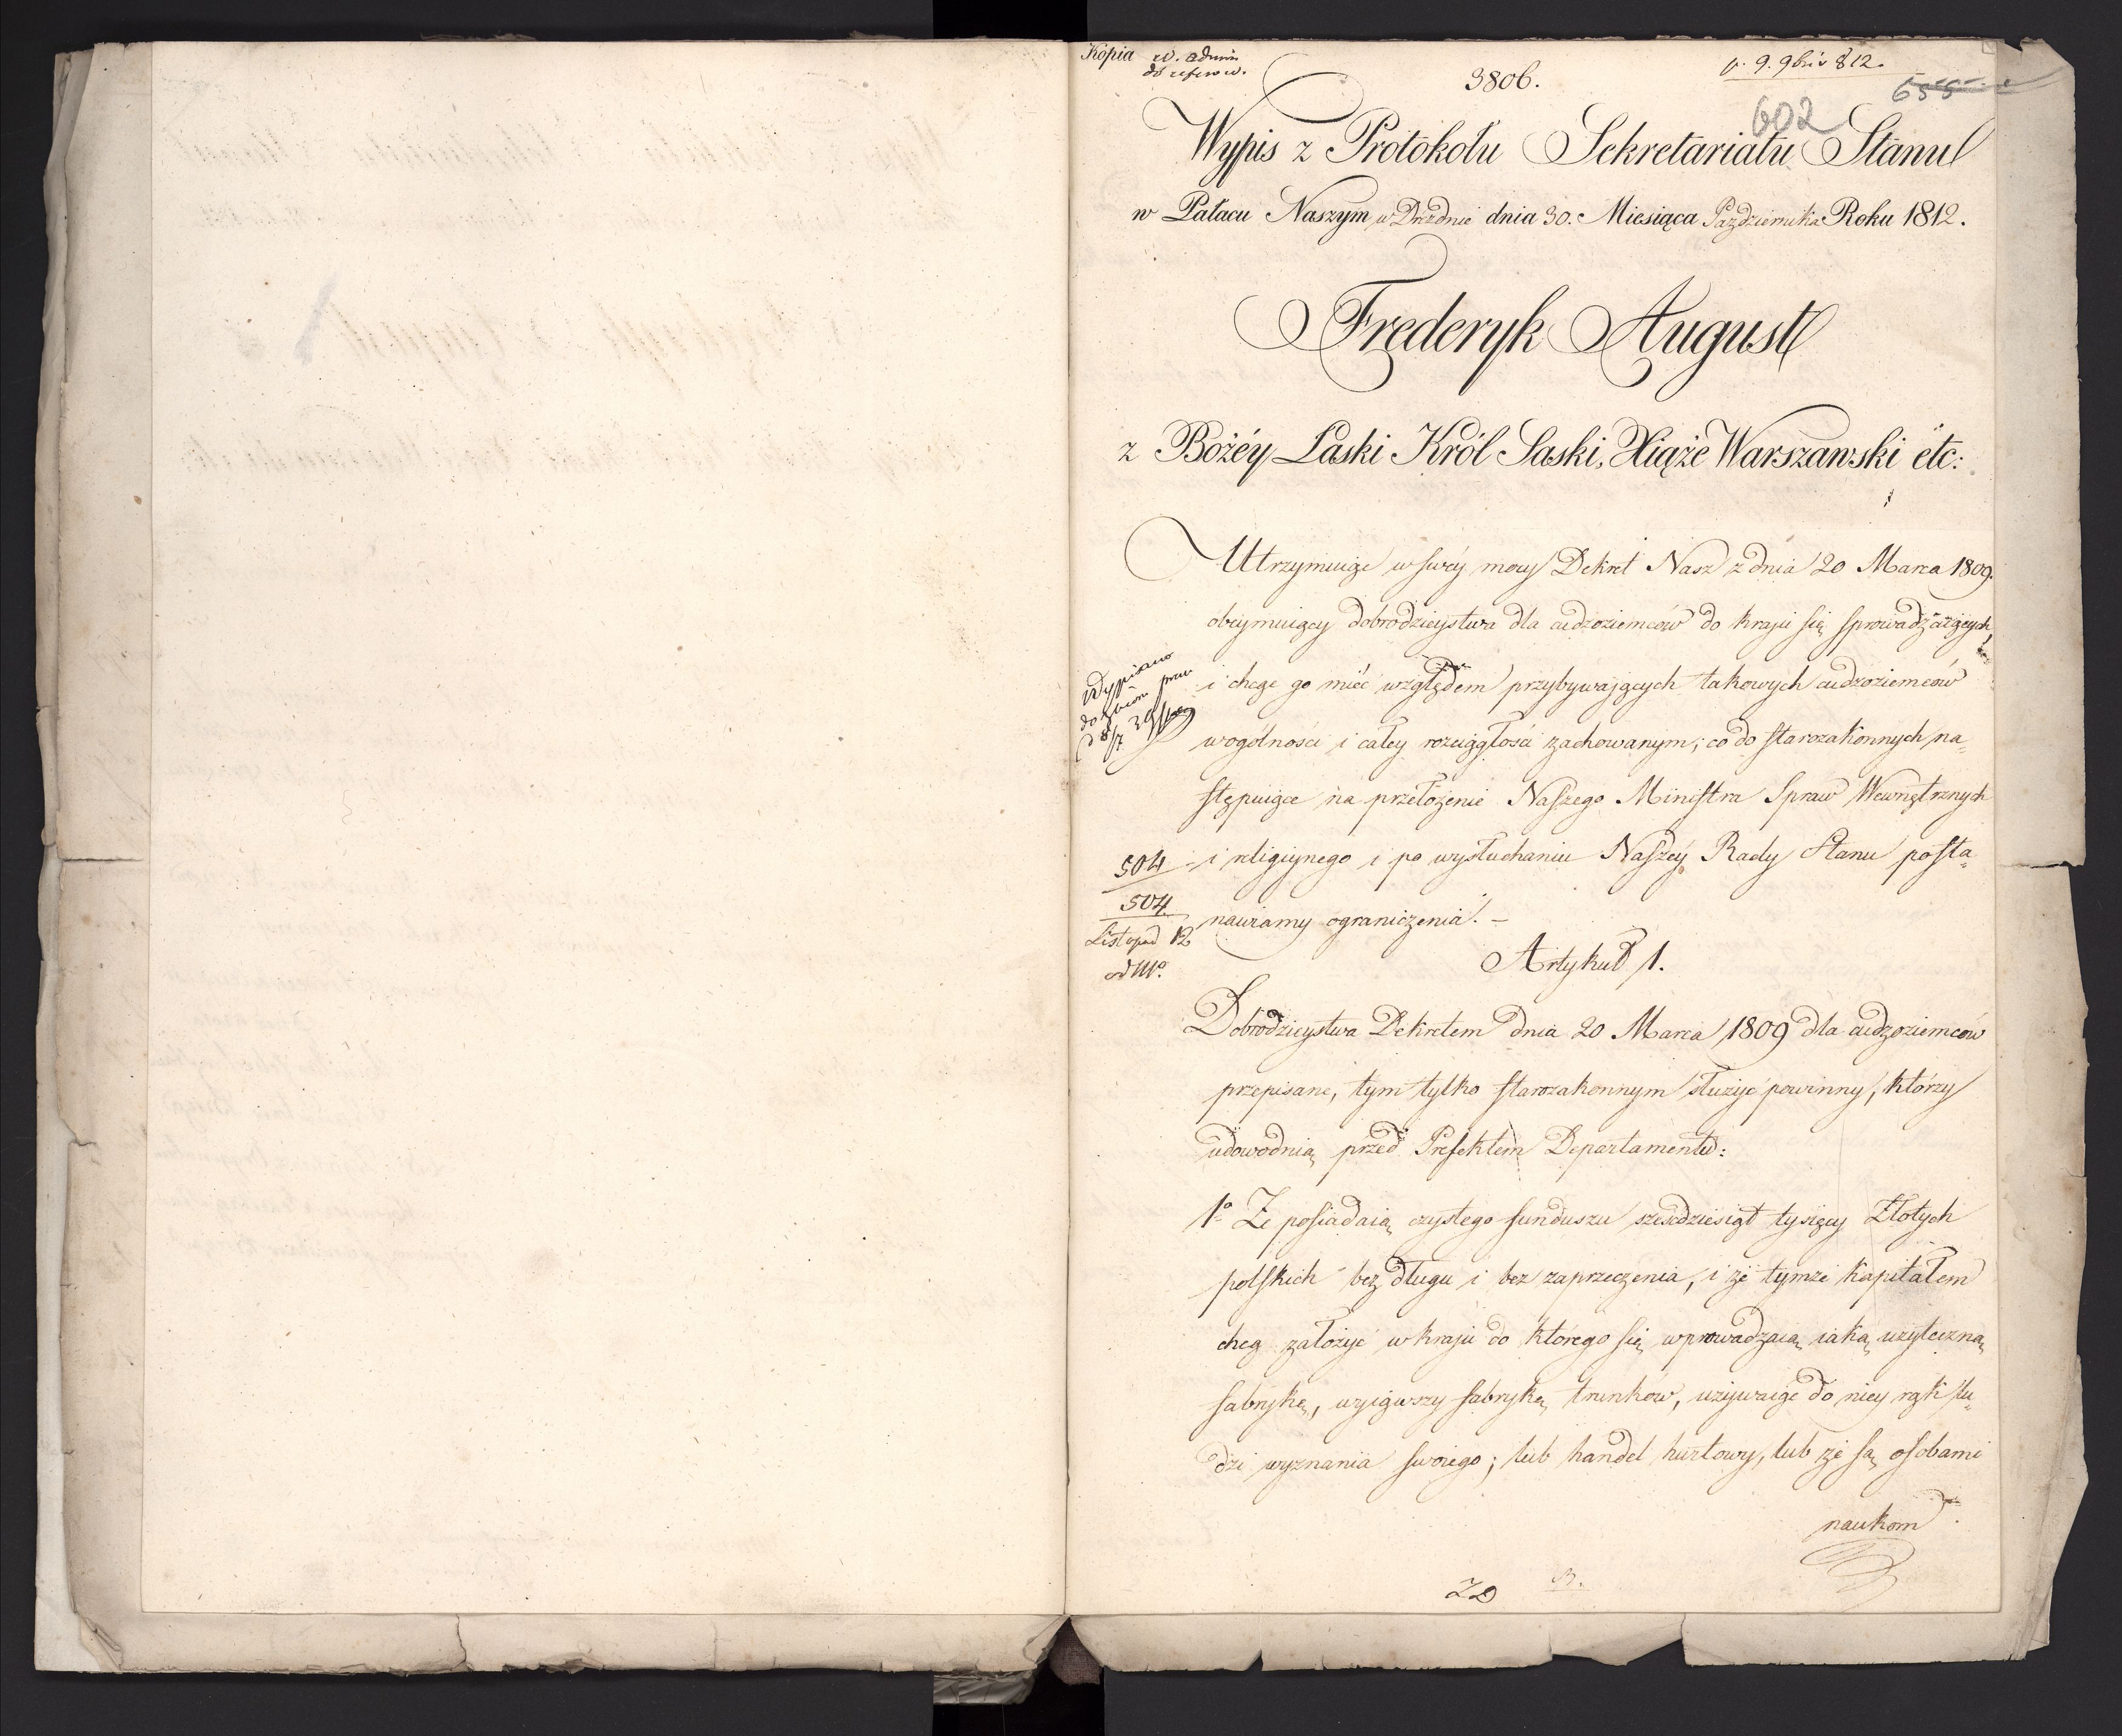 Kópia
do referow.
3806.
p. 9. 9bris 812.
655
602
Wypis z Protokołu Sekretariatu Stanu
w Pałacu Naszym w Dreźnie dnia 30. Miesiąca Października Roku 1812.
Frederyk August
z Bożéy Łaski Król Saski, Xiąże Warszawski etc:
Utrzymuiąc w swéy mocy Dekret Nasz z dnia 20 Marca 1809.
obeymuiący dobrodzieystwa dla cudzoziemców do kraju się sprowadzaiących,
i chcąc go mieć względem przybywających takowych cudzoziemców
w ogólności i całey rozciągłości zachowanym; co do starozakonnych na=
stępuiące na przełożenie Naszego Ministra Spraw Wewnętrznych
i religiynego i po wysłuchaniu Naszéy Rady Stanu posta=
nawiamy ograniczenia. –
Wypisano
504
504
Listopad 12
Artykuł 1.
Dobrodzieystwa Dekretem dnia 20 Marca 1809 dla cudzoziemców
przepisane, tym tylko starozakonnym służyć powinny, którzy
udowodnią przed Prefektem Departamentu:
1º Że posiadaią czystego funduszu sześćdziesiąt tysięcy Złotych
polskich bez długu i bez zaprzeczenia, i że tymże kapitałem
chcą założyć w kraju do którego się wprowadzaią iaką użyteczną
fabrykę, wyiąwszy fabrykę trunków, używaiąc do niey rąk lu=
dzi wyznania swoiego; lub handel hurtowy, lub że są osobami
naukom